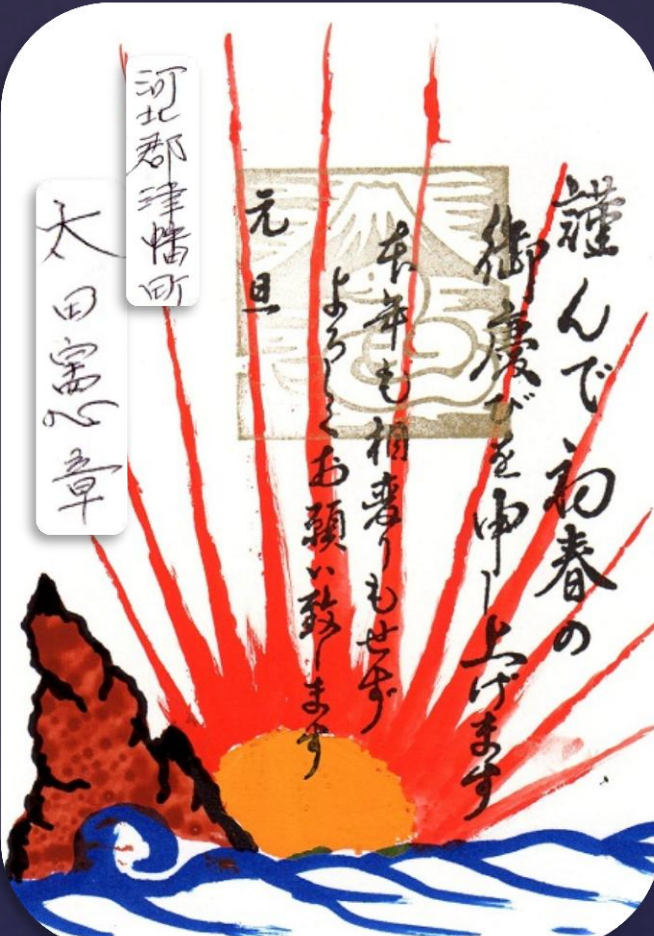 謹んで初春の
御慶びを申し上げます
本年も相変りもせず
よろしくお願い致します
元旦
河北郡津幡町
太田憲章